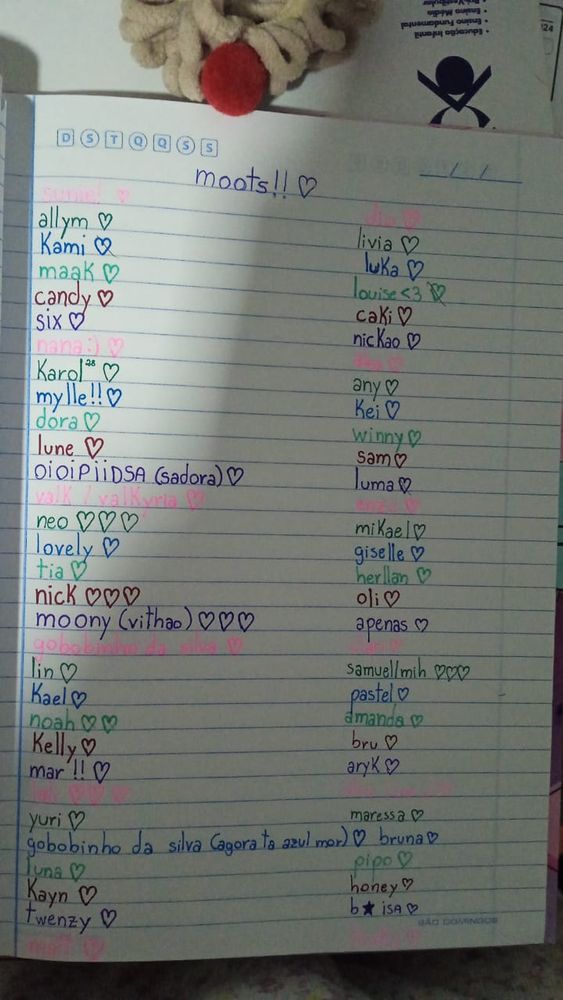 Educação Infantil
Ensino Fundamental
Ensino Médio
D S T Q Q S S
moots!! ♡
/ /
sunie! ♡
allym ♡
Kami ♡
maak ♡
candy ♡
six ♡
nana:) ♡
Karol²⁸ ♡
mylle!! ♡
dora ♡
lune ♡
OiOiPiiDSA (sadora) ♡
valk / valkyria ♡
neo ♡♡♡
lovely ♡
tia ♡
nick ♡♡♡
moony (vithao) ♡♡♡
gobobinho da silva ♡
lin ♡
Kael ♡
noah ♡♡
Kelly ♡
mar !! ♡
♡♡♡
yuri ♡
gobobinho da silva (agora ta azul mor) ♡
luna ♡
Kayn ♡
twenzy ♡
♡
♡
livia ♡
luka ♡
louise <3 ♡
caki ♡
nickao ♡
♡
any ♡
Kei ♡
winny ♡
sam ♡
luma ♡
♡
mikael ♡
giselle ♡
herllan ♡
oli ♡
apenas ♡
♡
samuel/mih ♡♡♡
pastel ♡
amanda ♡
bru ♡
aryk ♡
maressa ♡
bruna ♡
pipo ♡
honey ♡
b★ isa ♡
SÃO DOMINGOS